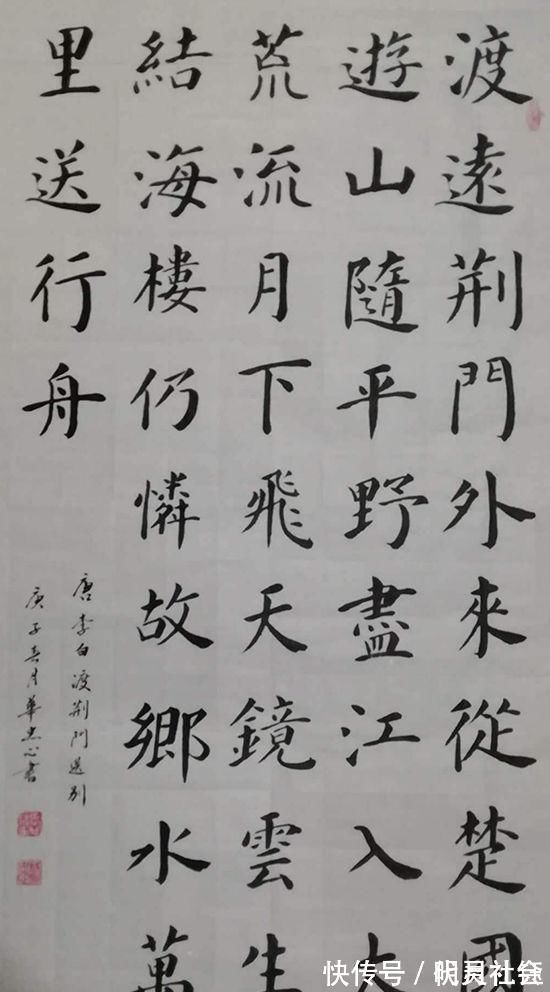 渡遠荆門外來從楚國
遊山隨平野盡江入大
荒流月下飛天鏡雲生
結海樓仍憐故鄉水萬
里送行舟
唐李白渡荆門送别
庚子春月華忠心書
快传号/